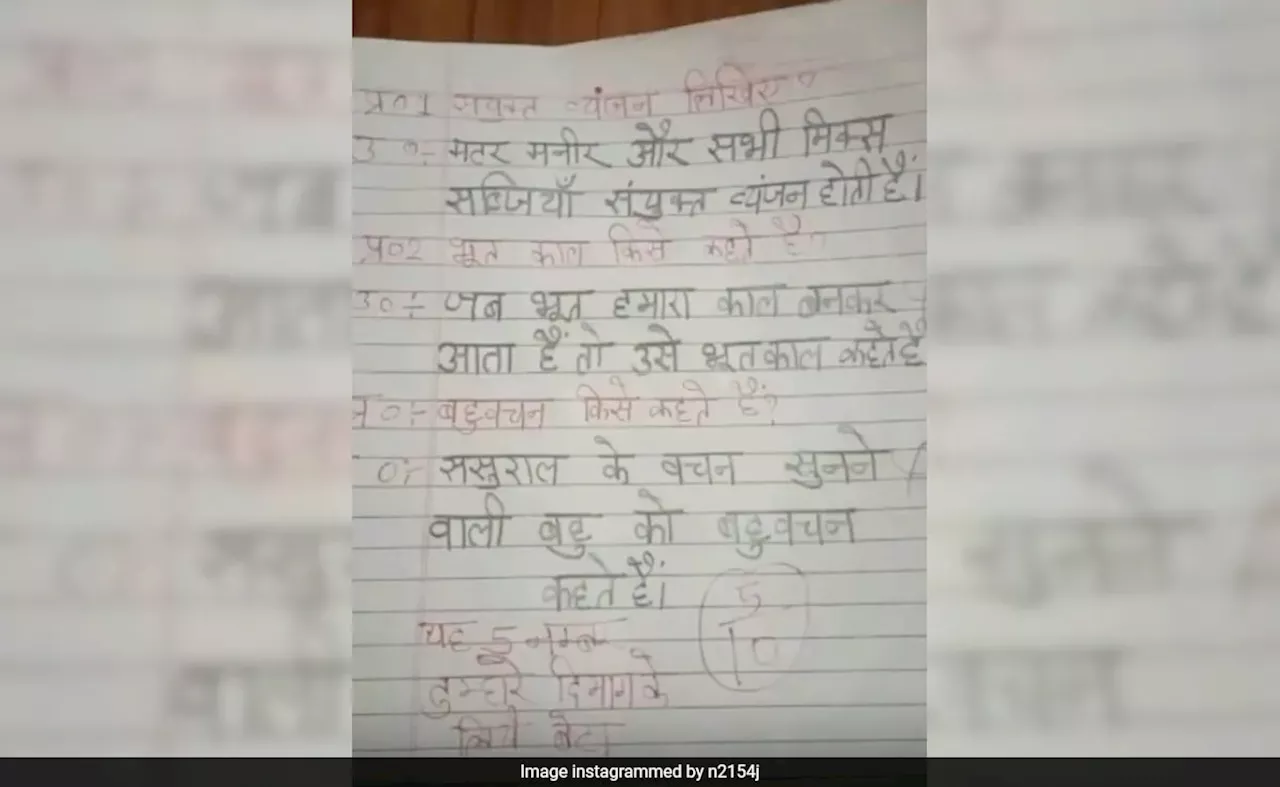 प्र०1 सयुक्त व्यंजन लिखिए?
उ०:- मटर मनीर और सभी मिक्स
सब्जियाँ संयुक्त व्यंजन होती हैं।
प्र०2 भूत काल किसे कहते है?
उ०:- जब भूत हमारा काल बनकर
आता हैं तो उसे भूतकाल कहते है
प्र०:- बहुवचन किसे कहते हैं?
0:- ससुराल के वचन सुनने
वाली बहु को बहुवचन
कहते हैं।
5
10
यह 5 नम्बर
तुम्हारे दिमाग के
लिये बेटा
Image instagrammed by n2154j